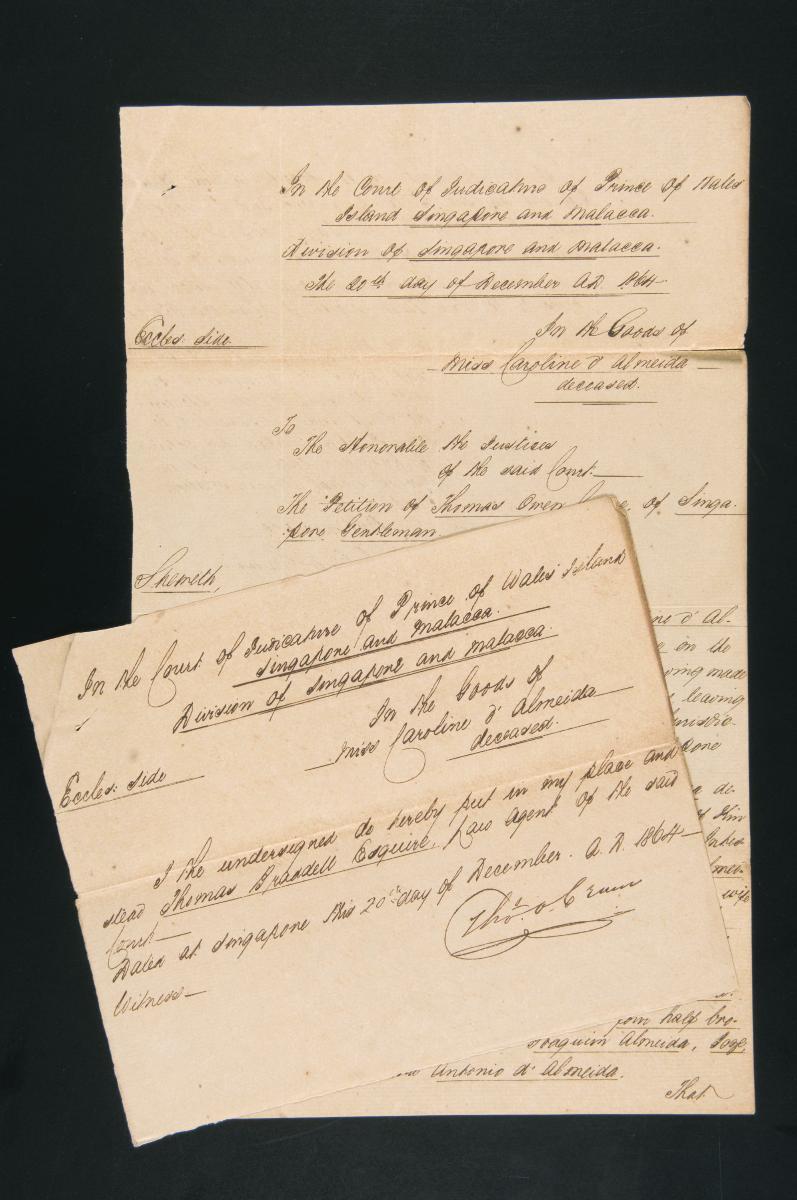 In the Court of Judicature of Prince of Wales
Island Singapore and Malacca.
Division of Singapore and Malacca.
The 20th day of December A.D. 1864.
Eccles: Side
In the Goods of
Miss Caroline d'Almeida
deceased.
To
The Honorable the Justices
of the said Court.
The Petition of Thomas Owen of Singa-
pore Gentleman.
Sheweth,
d'Al-
on the
made
leaving
pone
de-
wife
half bro-
Joaquim Almeida, José,
Antonio d'Almeida.
That
In the Court of Judicature of Prince of Wales Island
Singapore and Malacca.
Division of Singapore and Malacca.
In the Goods of
Miss Caroline d'Almeida
deceased.
Eccles: Side
I the undersigned do hereby put in my place and
stead Thomas Braddell Esquire, Law Agent of the said
Court
Dated at Singapore this 20th day of December. A.D. 1864
Thos. O. Crane
Witness